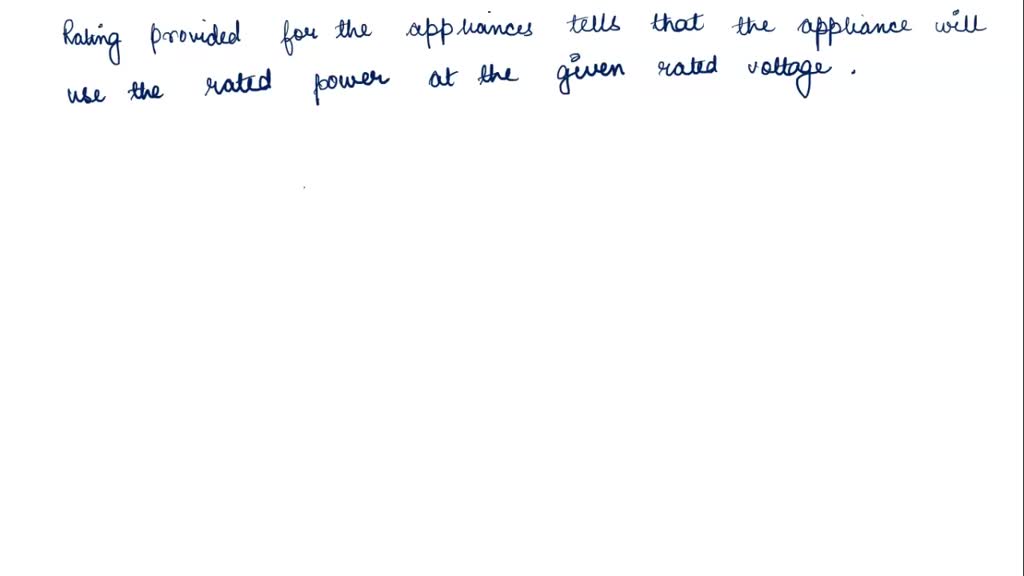 Rating provided for the appliances tells that the appliance will
use the rated power at the given rated voltage.